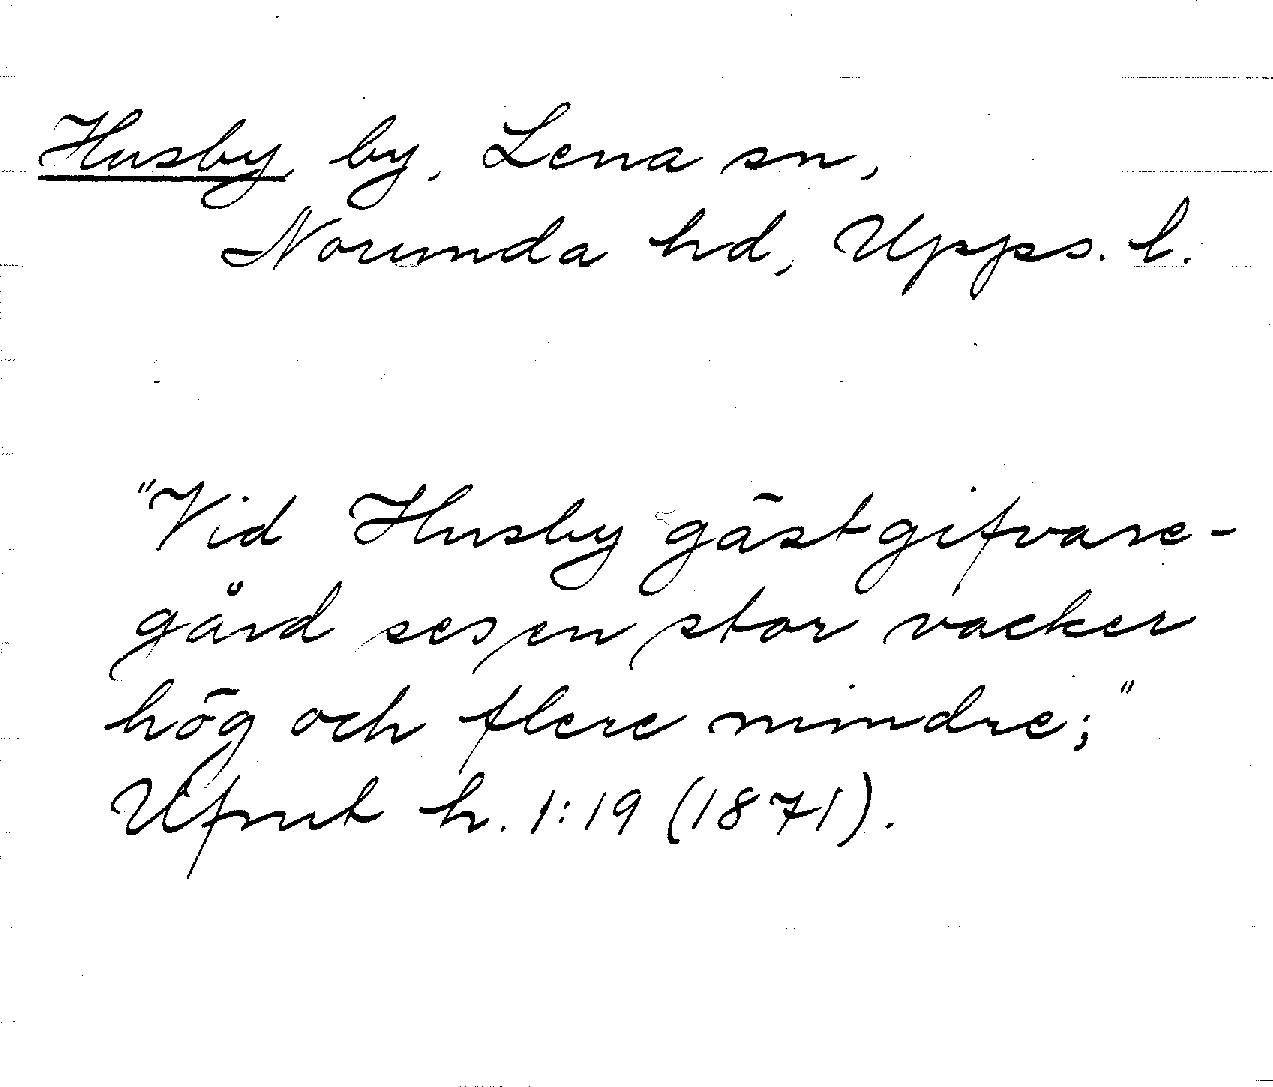 Husby by, Lena sn,
Norunda hd, Upps. l.
"Vid Husby gästgifvare-
gård ses en stor vacker
hög och flere mindre;"
Ufmt h. 1:19 (1871).